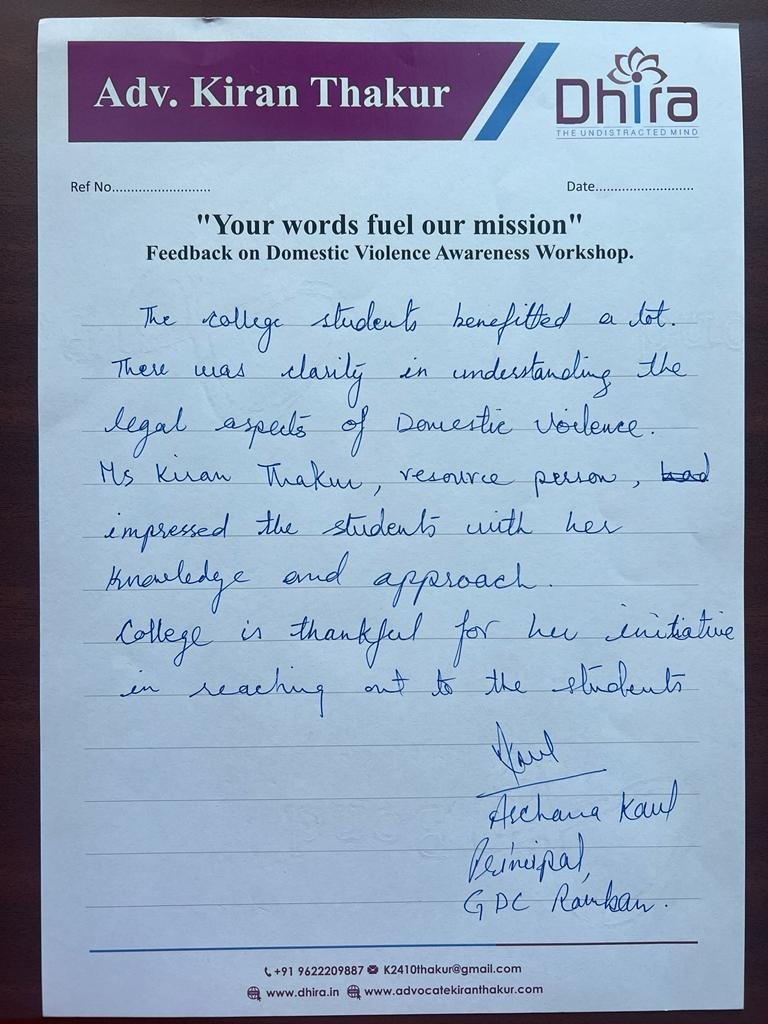 Adv. Kiran Thakur
Dhira
THE UNDISTRACTED MIND
Ref No..........................
Date..........................
"Your words fuel our mission"
Feedback on Domestic Violence Awareness Workshop.
The college students benefitted a lot.
There was clarity in understanding the
legal aspects of Domestic Voilence.
Ms Kiran Thakur, resource person, had
impressed the students with her
knowledge and approach.
College is thankful for her initiative
in reaching out to the students
Kaul
Archana Kaul
Principal,
GDC Ramban.
+91 9622209887 K2410thakur@gmail.com
www.dhira.in www.advocatekiranthakur.com